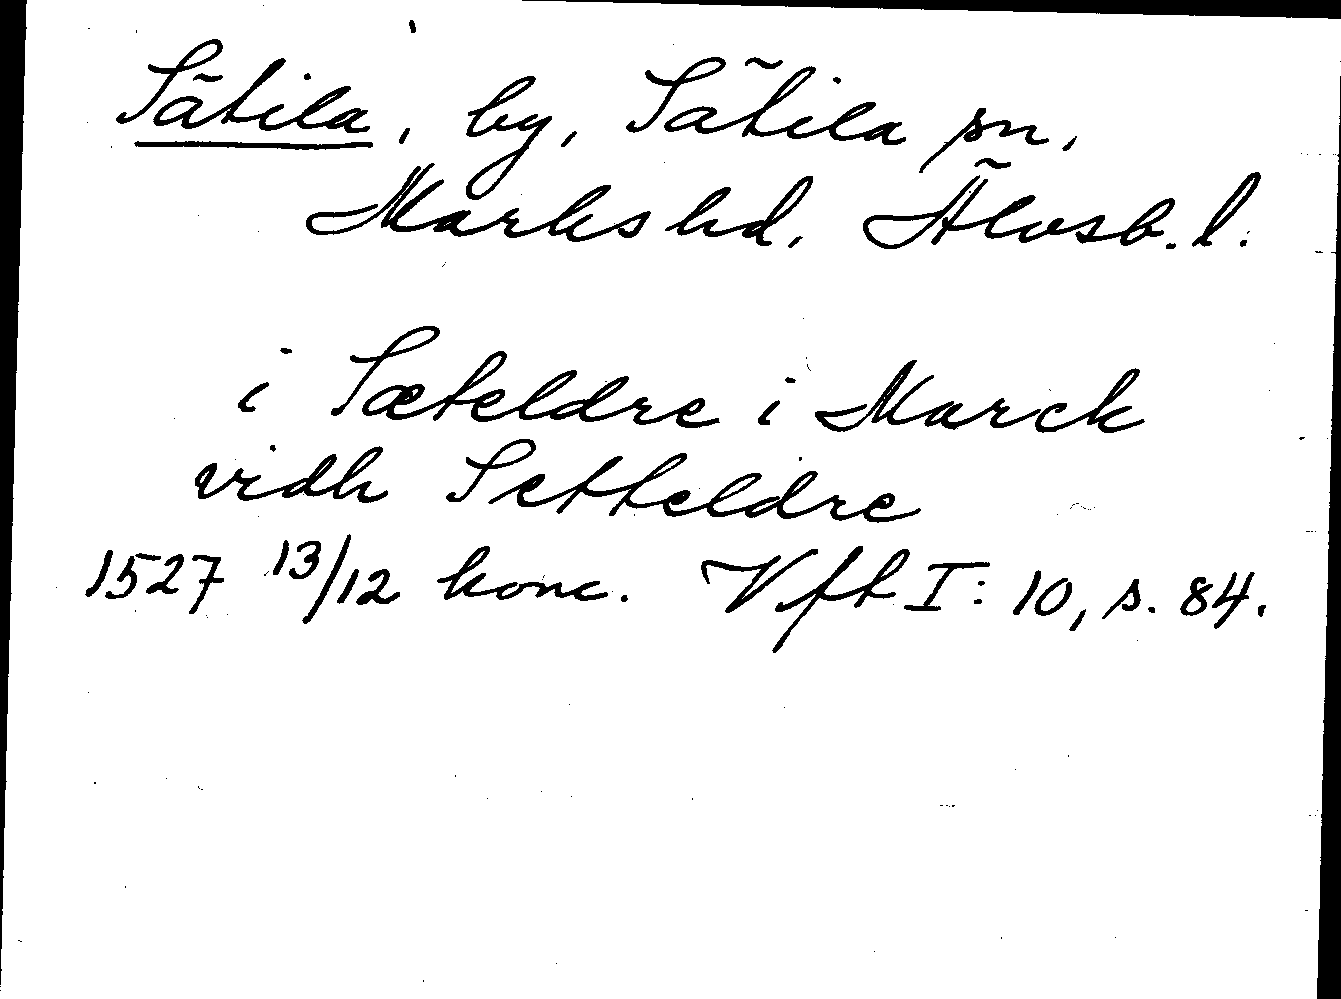 Sätila, by, Sätila sn,
Marks hd. Älvsb. l.
i Sæteldre i Marck
vidh Setteldre
1527 13/12 konc. Vft I: 10, s. 84.